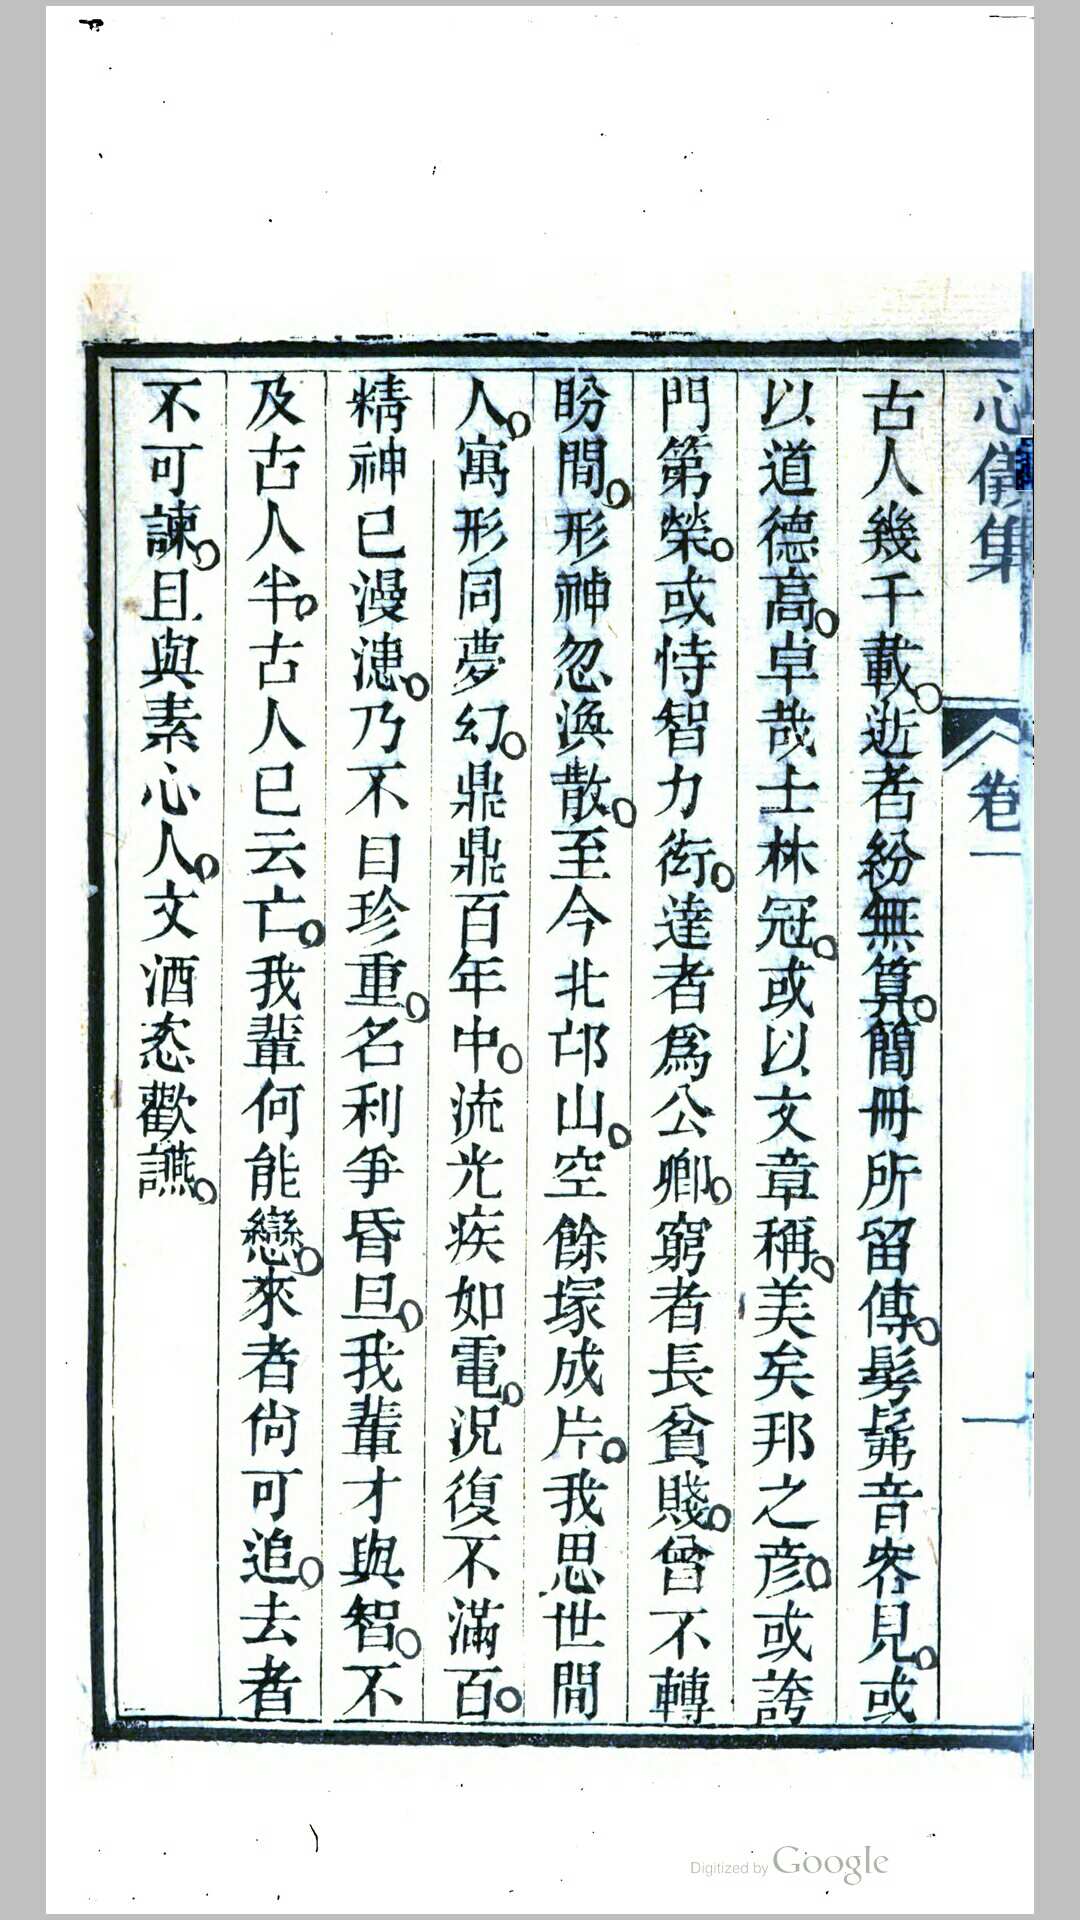 心儀集
卷一
一
古人幾千載。逝者紛無算。簡冊所留傳。髣髴音容見。或
以道德高。卓哉士林冠。或以文章稱。美矣邦之彦。或誇
門第榮。或恃智力衒。達者爲公卿。窮者長貧賤。曾不轉
盼間。形神忽渙散。至今北邙山。空餘塚成片。我思世間
人。寓形同夢幻。鼎鼎百年中。流光疾如電。況復不滿百。
精神已漫漶。乃不自珍重。名利爭昏旦。我輩才與智。不
及古人半。古人已云亡。我輩何能戀。來者尙可追。去者
不可諫。且與素心人。文酒恣歡讌。
Digitized by Google